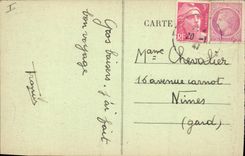 I
CARTE
Gros baisers. J'ai fait
bon voyage
Mme Chevalier
16 avenue carnot
Nîmes
(gard)